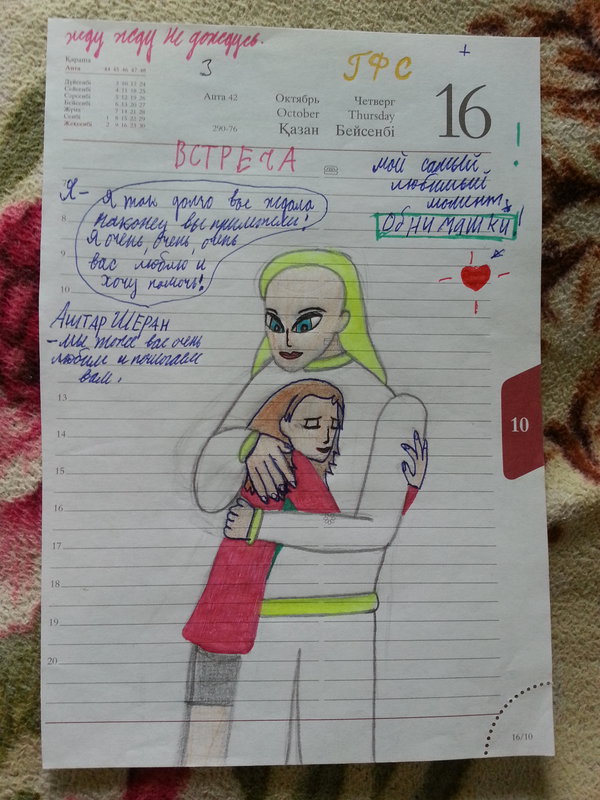 жду жду не дождусь.
3
ГФС
+
Қараша
Апта 44 45 46 47 48
Дүйсенбі 3 10 17 24
Сейсенбі 4 11 18 25
Сәрсенбі 5 12 19 26
Бейсенбі 6 13 20 27
Жұма 7 14 21 28
Сенбі 1 8 15 22 29
Жексенбі 2 9 16 23 30
Апта 42
290-76
Октябрь Четверг
October Thursday
Қазан Бейсенбі
16
ВСТРЕЧА
мой самый
любимый
момент
Обнимашки!
Я-
Я так долго вас ждала
наконец вы прилетели!
Я очень, очень, очень
вас люблю, и
хочу помочь!
Аштар ШЕРАН
-мы тоже вас очень
любим и помогаем
вам.
8
9
10
13
14
15
16
17
18
19
20
10
16/10